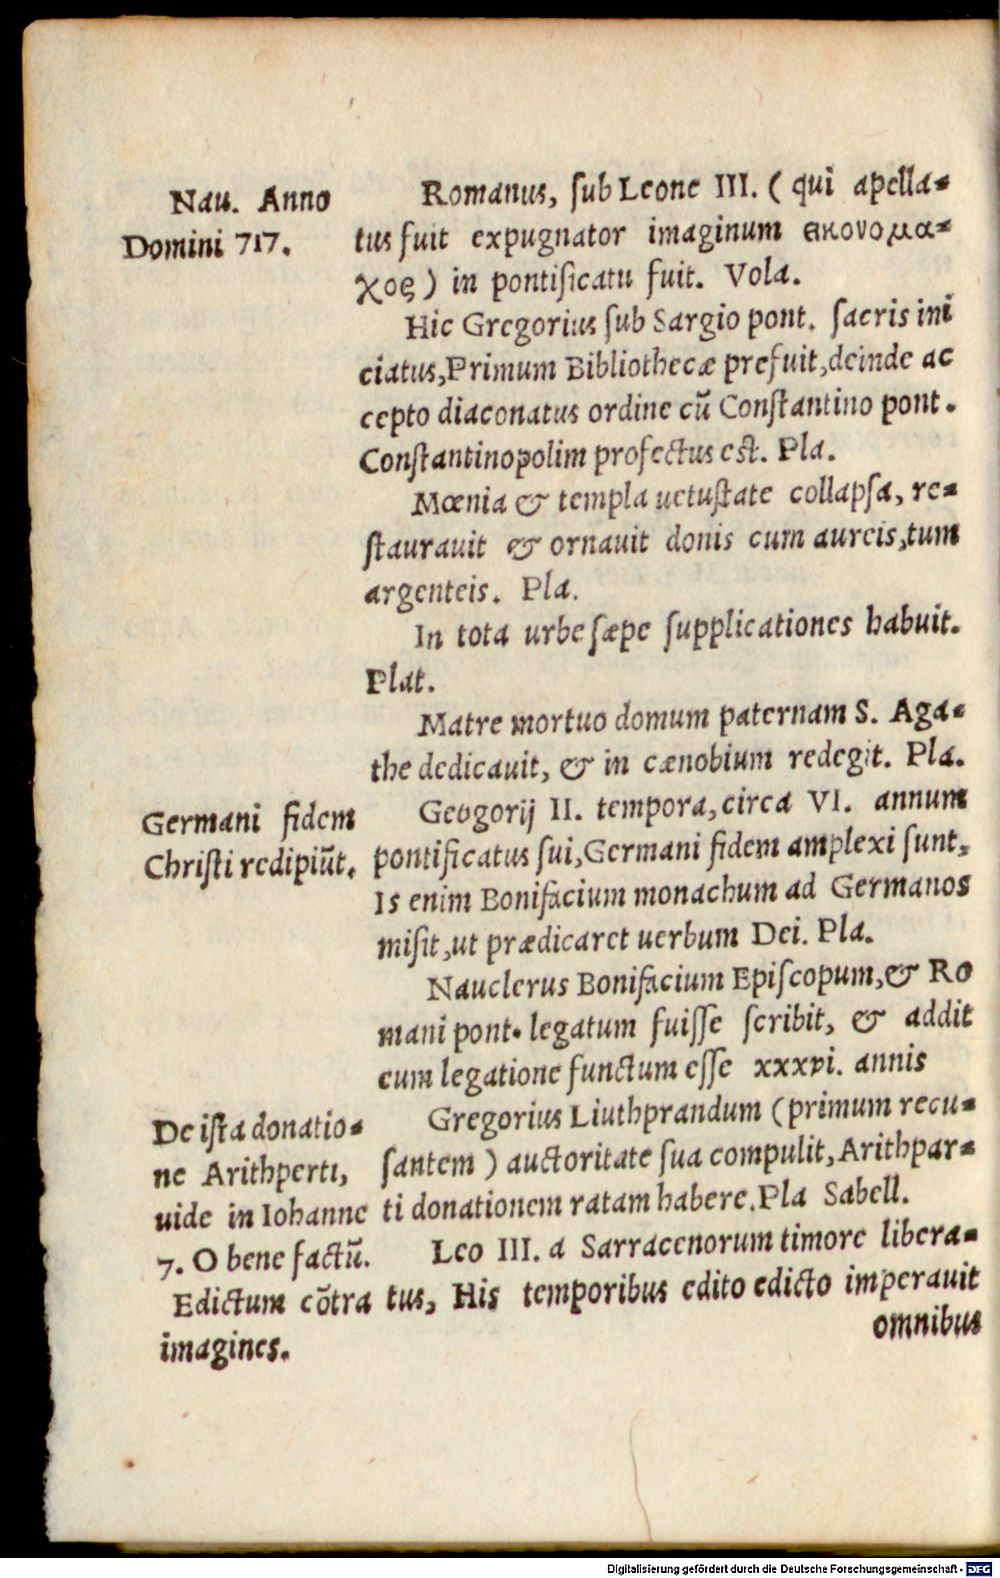 Nau. Anno
Domini 717.
Romanus, ſub Leone III. ( qui apella-
tus fuit expugnator imaginum εικονομα-
χος ) in pontificatu fuit. Vola.
Hic Gregorius ſub Sargio pont. ſacris ini
ciatus, Primum Bibliothecæ prefuit, deinde ac
cepto diaconatus ordine cū Conſtantino pont.
Conſtantinopolim profectus eſt. Pla.
Mœnia & templa uetuſtate collapſa, re-
ſtaurauit & ornauit donis cum aureis, tum
argenteis. Pla.
In tota urbe ſæpe ſupplicationes habuit.
Plat.
Matre mortuo domum paternam S. Aga-
the dedicauit, & in cænobium redegit. Pla.
Germani fidem
Chriſti redipiūt.
Geogorij II. tempora, circa VI. annum
pontificatus ſui, Germani fidem amplexi ſunt,
Is enim Bonifacium monachum ad Germanos
miſit, ut prædicaret uerbum Dei. Pla.
Nauclerus Bonifacium Epiſcopum, & Ro
mani pont. legatum fuiſſe ſcribit, & addit
eum legatione functum eſſe xxxvi. annis
De iſta donatio-
ne Arithperti,
uide in Iohanne
7. O bene factū.
Gregorius Liuthprandum ( primum recu-
ſantem ) auctoritate ſua compulit, Arithpar-
ti donationem ratam habere. Pla Sabell.
Edictum cōtra
imagines.
Leo III. a Sarracenorum timore libera-
tus, His temporibus edito edicto imperauit
omnibus
Digitalisierung gefördert durch die Deutsche Forschungsgemeinschaft - DFG